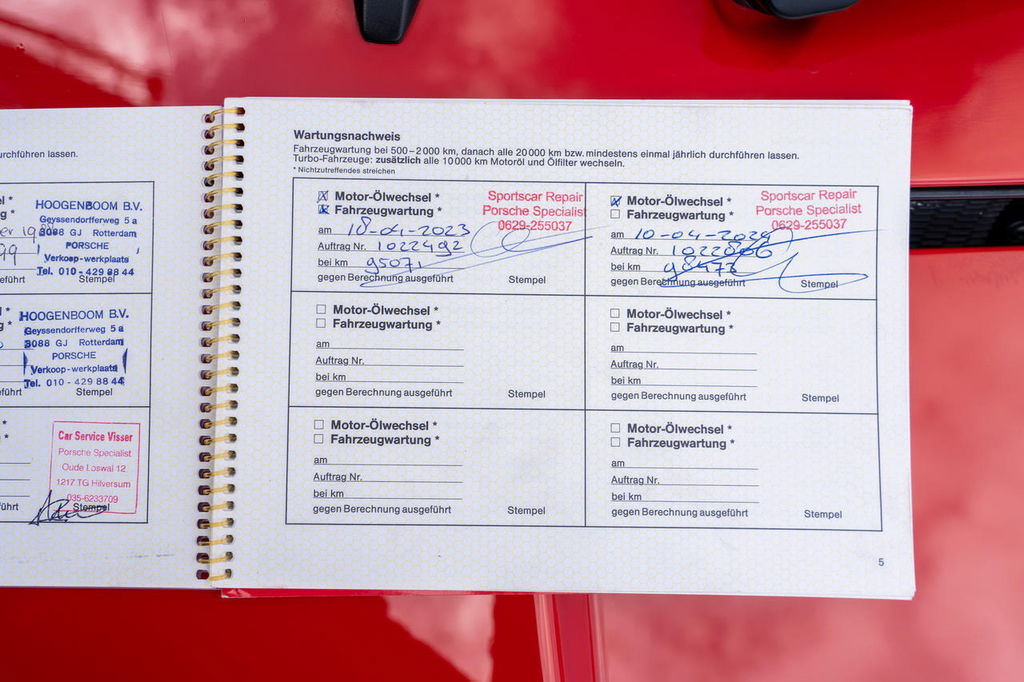 urchführen lassen.
HOOGENBOOM B.V.
Geyssendorfferweg 5 a
3088 GJ Rotterdam
PORSCHE
Verkoop-werkplaats
Tel. 010-429 88 44
führt Stempel
HOOGENBOOM B.V.
Geyssendorfferweg 5 a
3088 GJ Rotterdam
PORSCHE
Verkoop-werkplaats
Tel. 010-429 88 44
führt Stempel
Car Service Visser
Porsche Specialist
Oude Loswal 12
1217 TG Hilversum
035-6233709
führt Stempel
Wartungsnachweis
Fahrzeugwartung bei 500–2000 km, danach alle 20000 km bzw. mindestens einmal jährlich durchführen lassen.
Turbo-Fahrzeuge: zusätzlich alle 10000 km Motoröl und Ölfilter wechseln.
* Nichtzutreffendes streichen
Motor-Ölwechsel *
Fahrzeugwartung *
Sportscar Repair
Porsche Specialist
0629-255037
am 18-04-2023
Auftrag Nr. 1022492
bei km 95071
gegen Berechnung ausgeführt Stempel
Motor-Ölwechsel *
Fahrzeugwartung *
Sportscar Repair
Porsche Specialist
0629-255037
am 10-04-2024
Auftrag Nr.
bei km 98473
gegen Berechnung ausgeführt Stempel
Motor-Ölwechsel *
Fahrzeugwartung *
am
Auftrag Nr.
bei km
gegen Berechnung ausgeführt Stempel
Motor-Ölwechsel *
Fahrzeugwartung *
am
Auftrag Nr.
bei km
gegen Berechnung ausgeführt Stempel
Motor-Ölwechsel *
Fahrzeugwartung *
am
Auftrag Nr.
bei km
gegen Berechnung ausgeführt Stempel
Motor-Ölwechsel *
Fahrzeugwartung *
am
Auftrag Nr.
bei km
gegen Berechnung ausgeführt Stempel
5